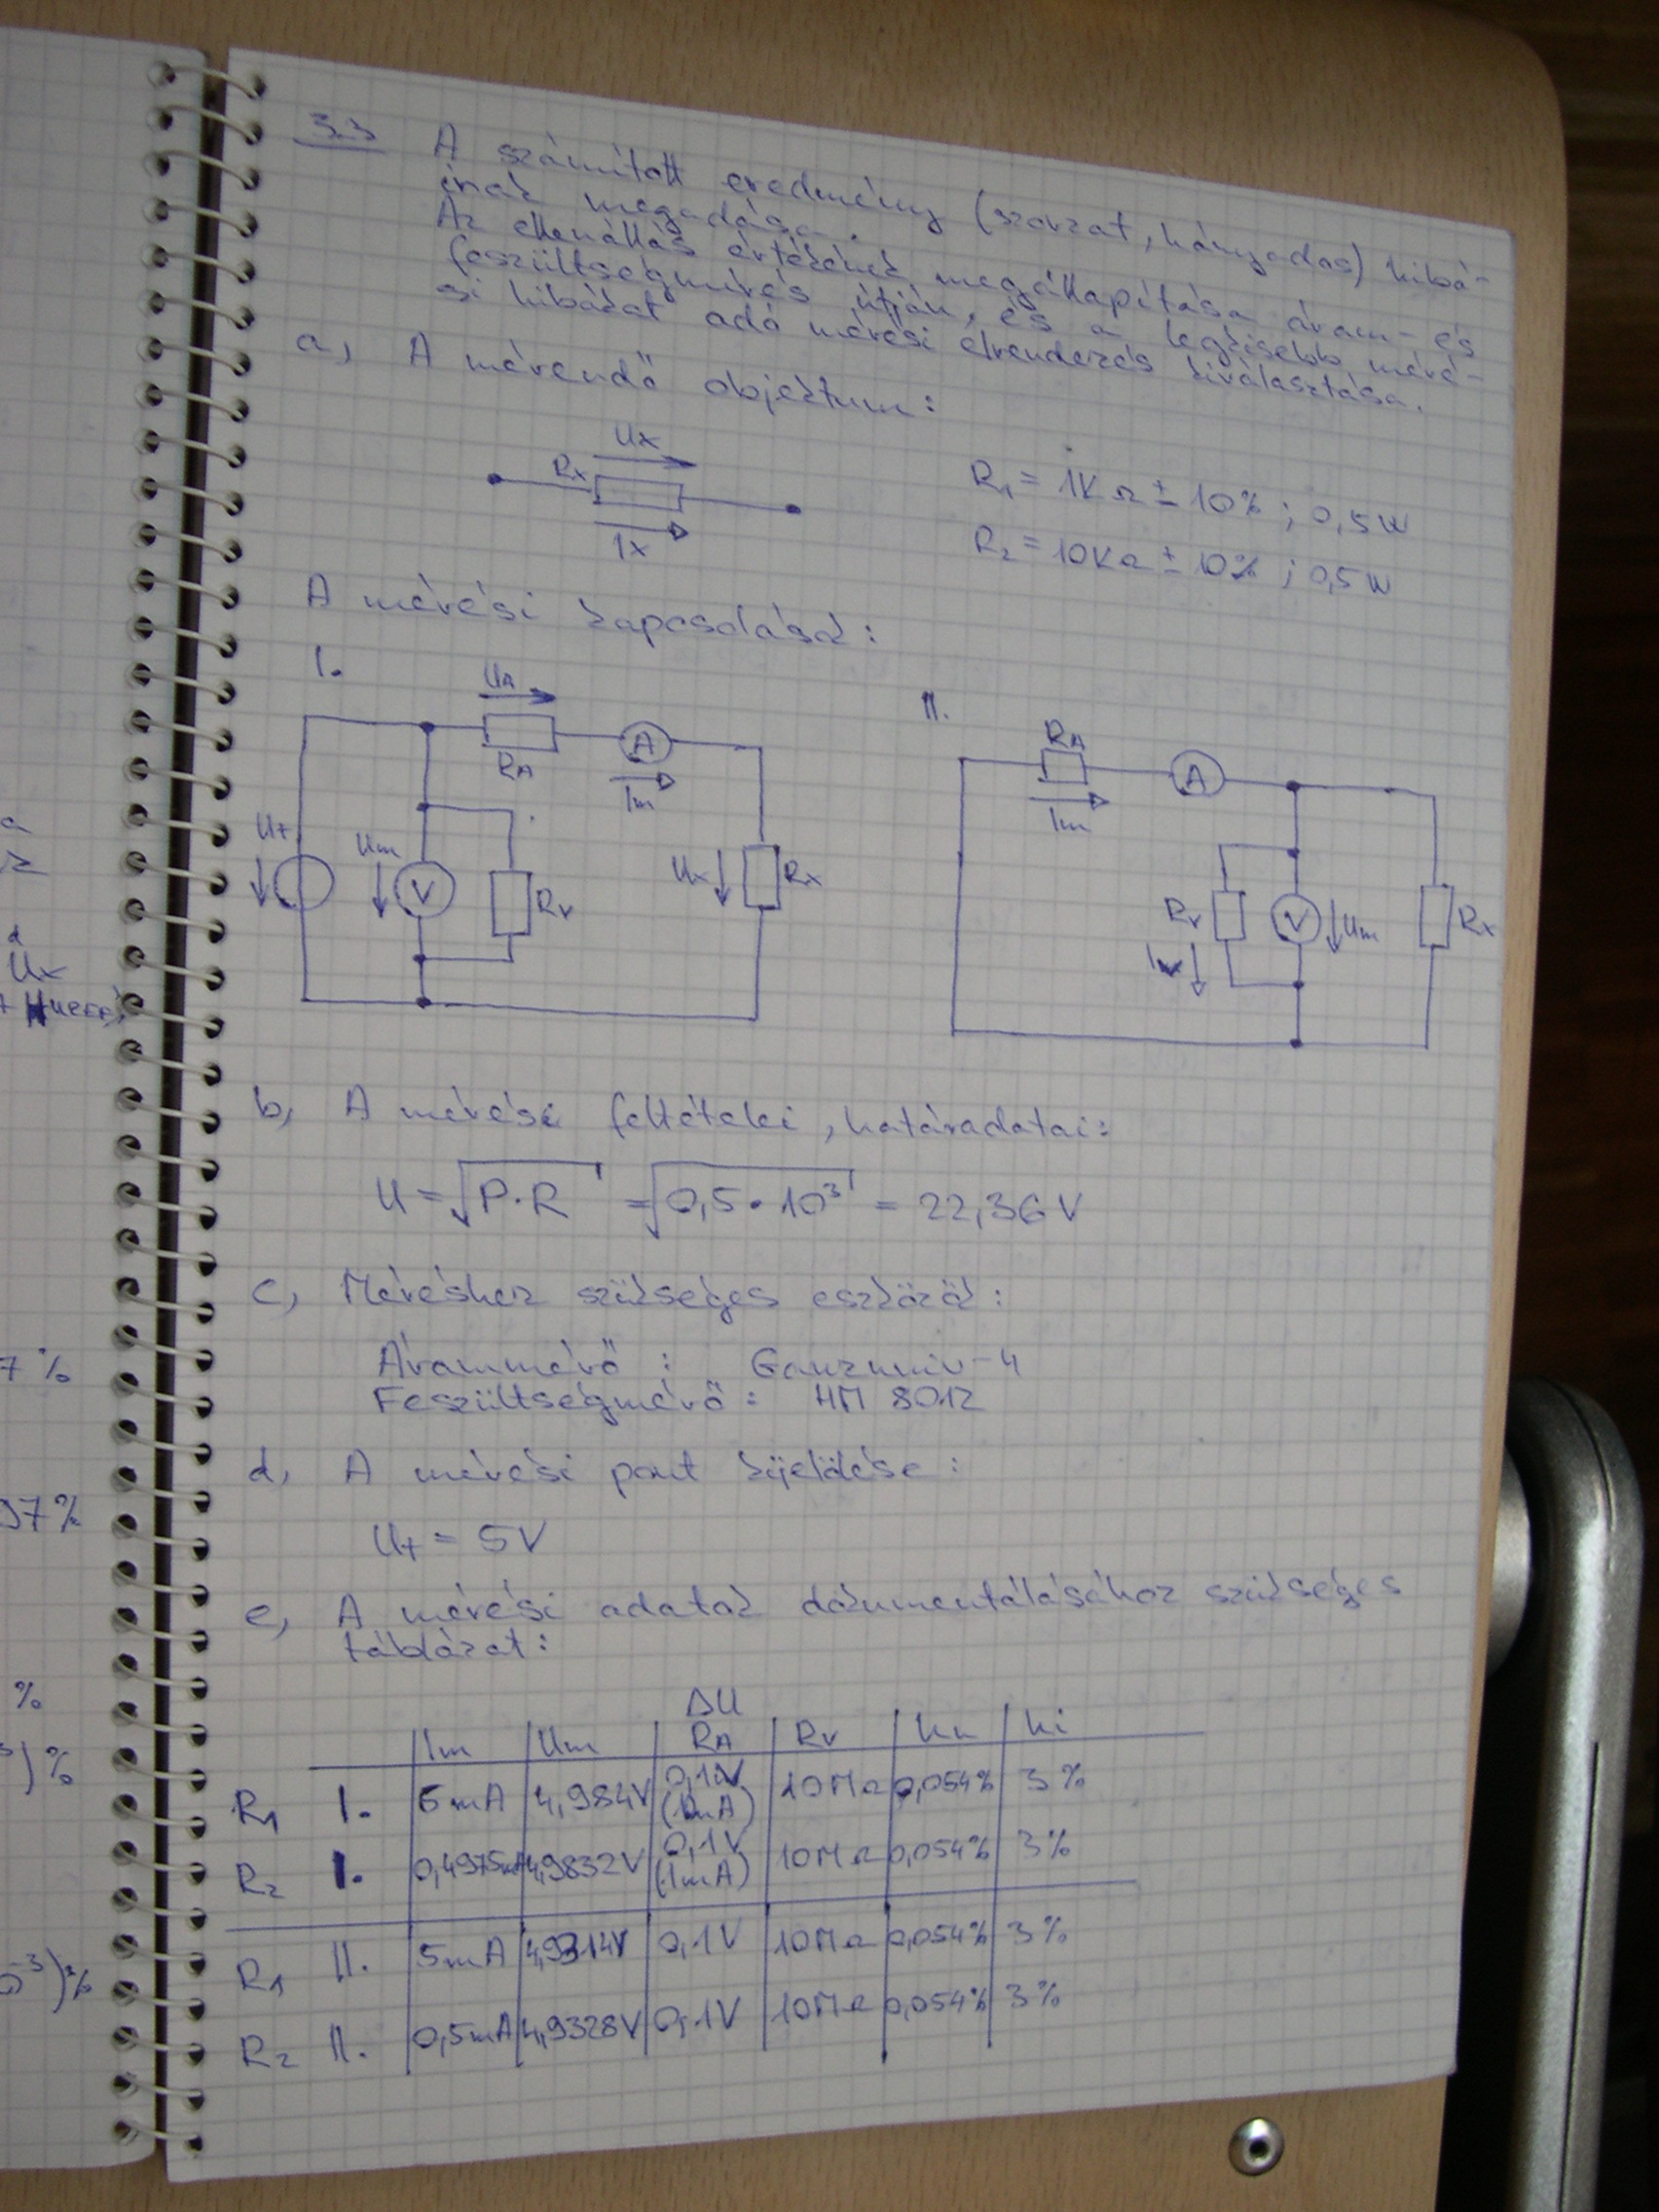 a
z
d
Ux
7 %
97%
%
3)%
3)%
3.3 A számított eredmény (szorzat, hányados) hibá-
ának megadása.
Az ellenállás értékének megállapítása áram- és
feszültségmérés útján, és a legkisebb méré-
si hibákat adó mérési elrendezés kiválasztása.
a, A mérendő objektum:
Ux
Rx
Ix
R1 = 1KΩ ± 10% ; 0,5W
R2 = 10KΩ ± 10% ; 0,5W
A mérési kapcsolások:
I.
UA
RA
A
Im
Ut
Um
V
Rv
Ux
Rx
II.
RA
A
Im
Rv
V
Um
Iv
Rx
b, A mérési feltételei, határadatai:
U = √P·R = √0,5·10³ = 22,36V
c, Méréshez szükséges eszközök:
Árammérő : Ganzuniv-4
Feszültségmérő : HM 8012
d, A mérési pont kijelölése :
Ut = 5V
e, A mérési adatok dokumentálásához szükséges
táblázat:
ΔU
Im Um RA Rv hu hi
R1 I. 5mA 4,984V 0,1V (10mA) 10MΩ 0,054% 3%
R2 I. 0,4975mA 4,9832V 0,1V (1mA) 10MΩ 0,054% 3%
R1 II. 5mA 4,9314V 0,1V 10MΩ 0,054% 3%
R2 II. 0,5mA 4,9328V 0,1V 10MΩ 0,054% 3%